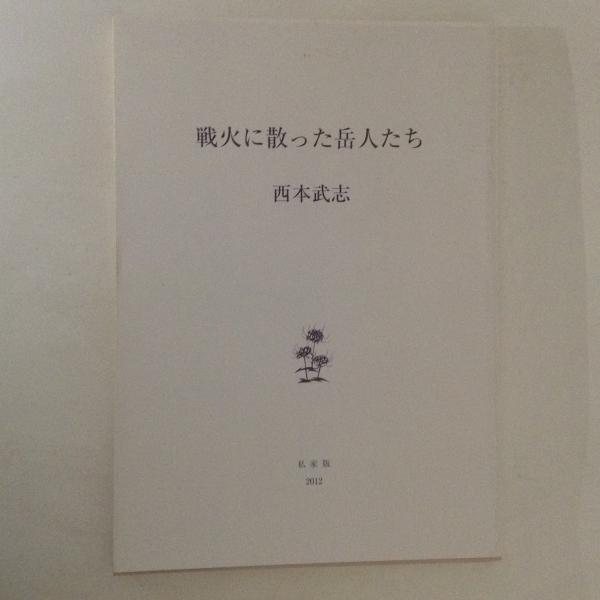 戦火に散った岳人たち
西本武志
私家版
2012